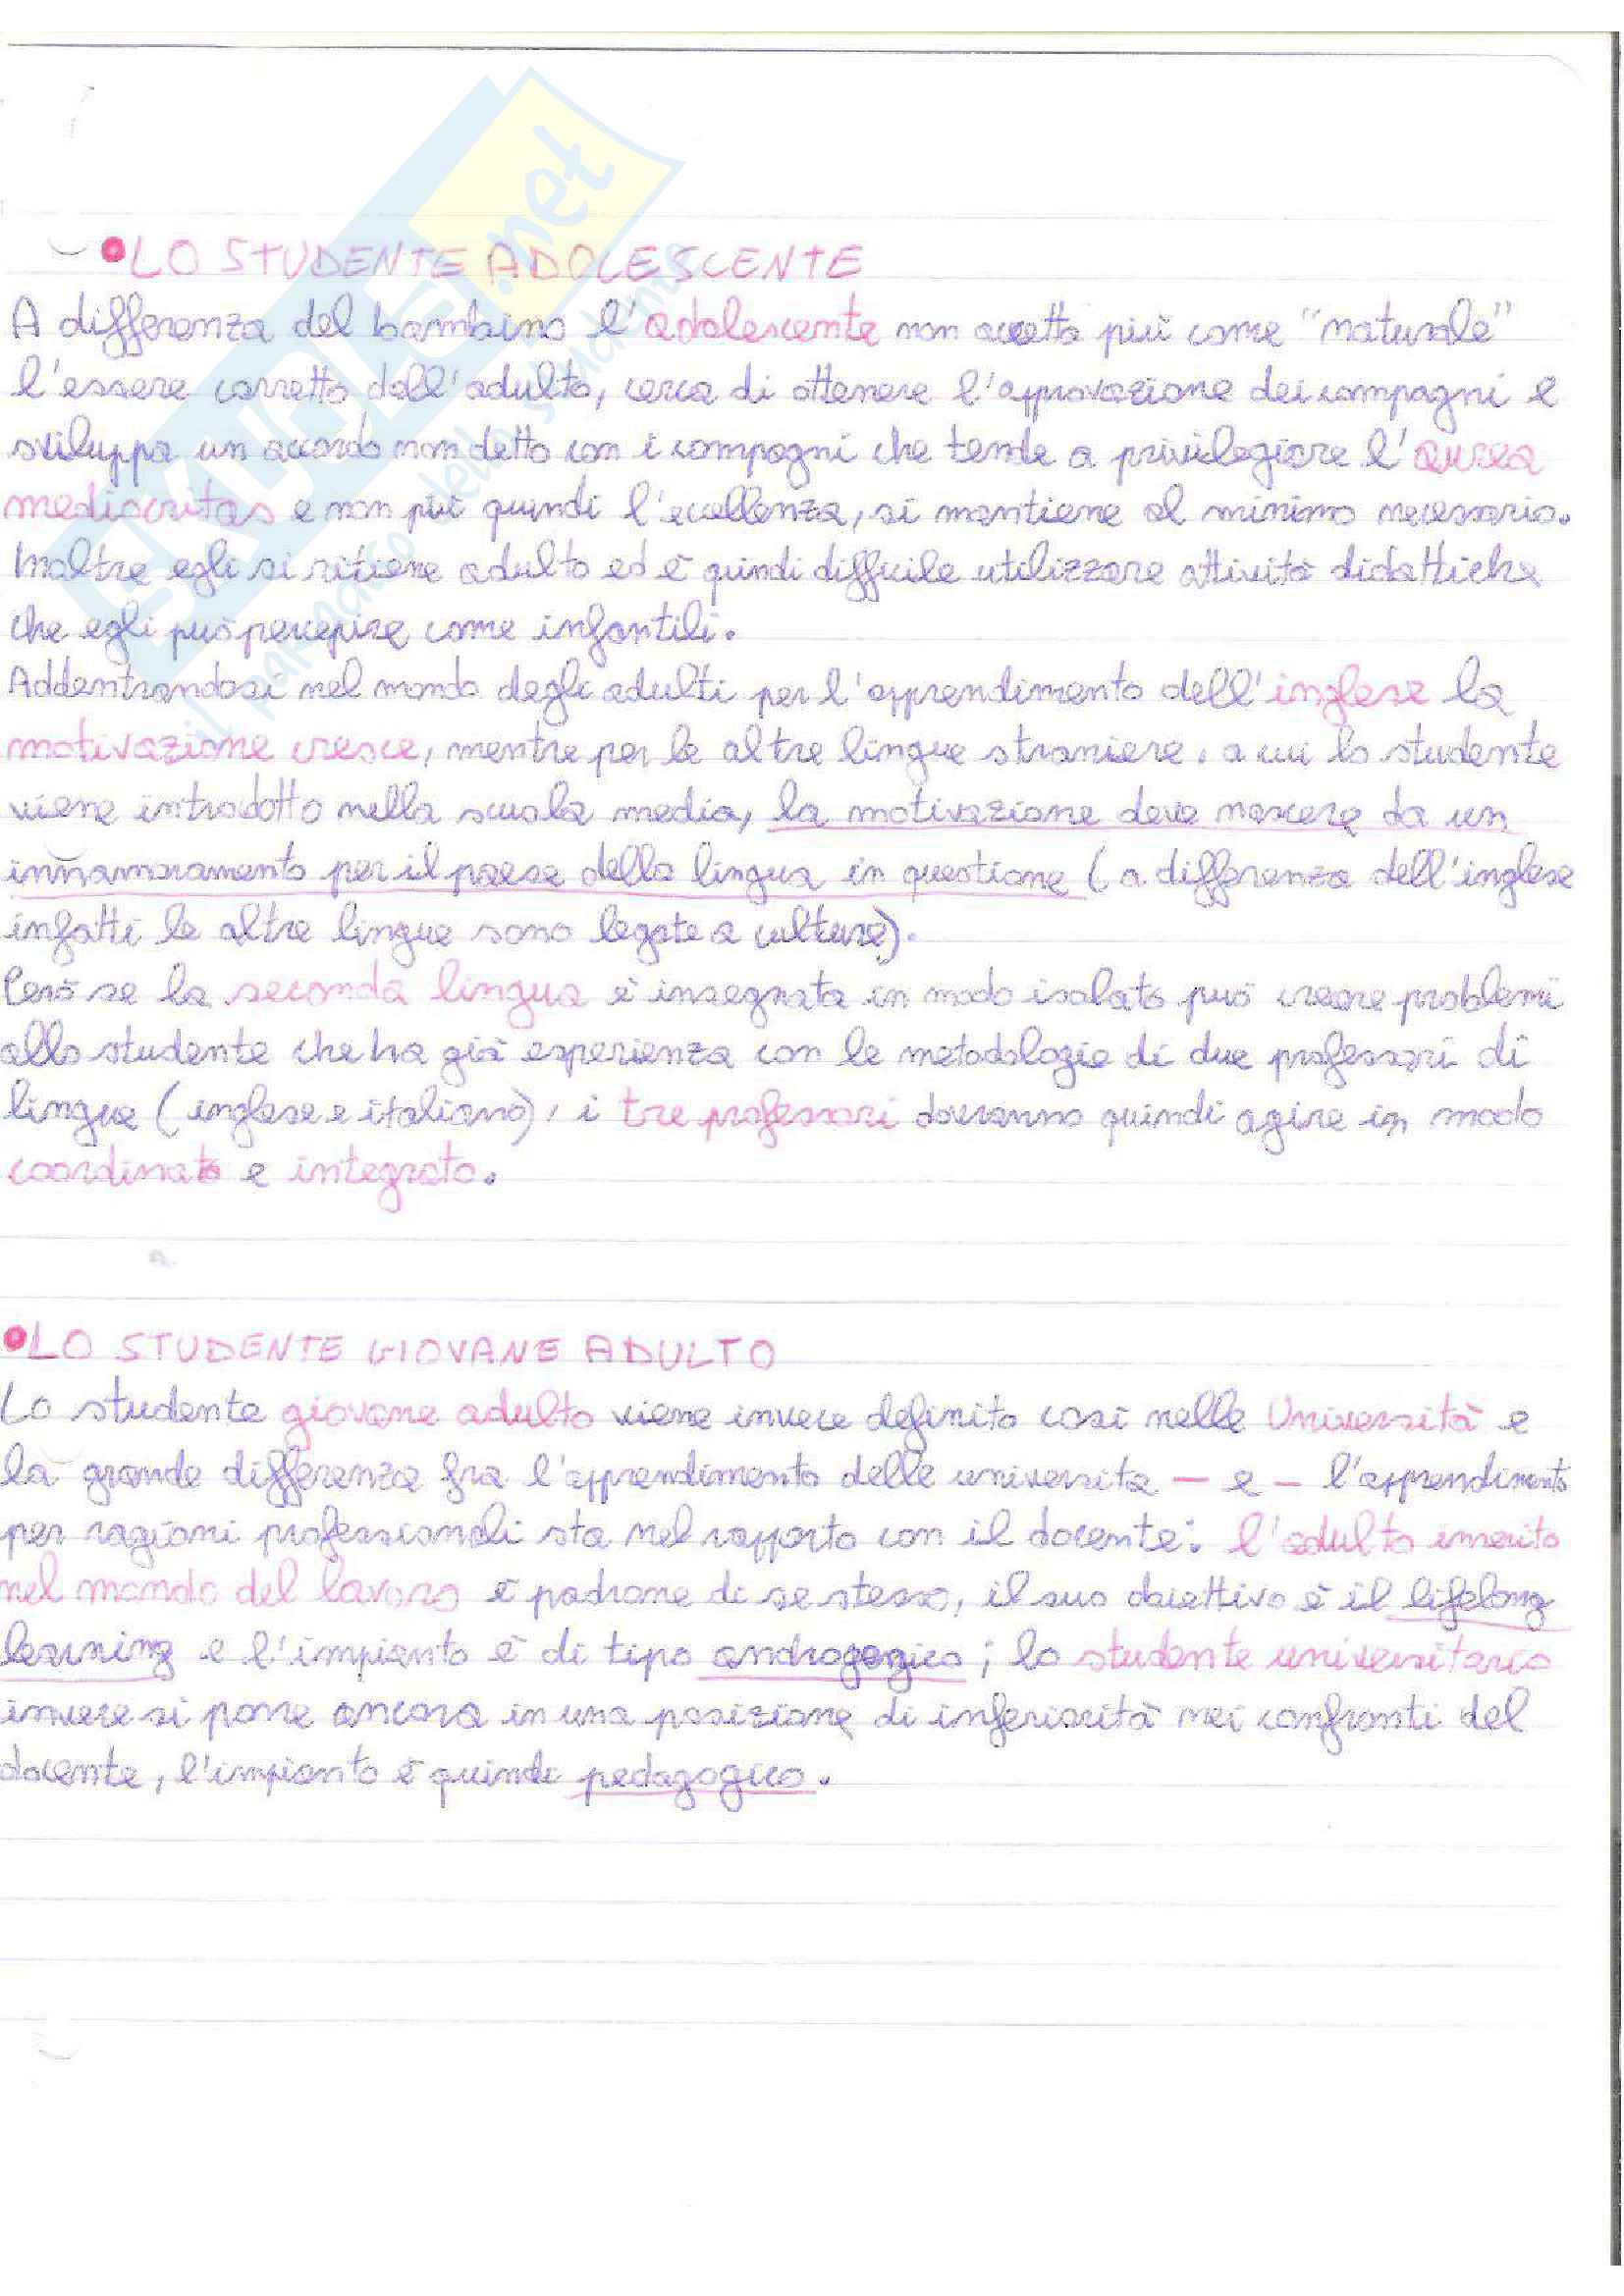 SKUOLA.net
il paradiso dello studente
LO STUDENTE ADOLESCENTE
A differenza del bambino l'adolescente non accetta più come "naturale"
l'essere corretto dall'adulto, cerca di ottenere l'approvazione dei compagni e
sviluppa un accordo non detto con i compagni che tende a privilegiare l'aurea
mediocritas e non più quindi l'eccellenza, si mantiene al minimo necessario.
Inoltre egli si ritiene adulto ed è quindi difficile utilizzare attività didattiche
che egli può percepire come infantili.
Addentrandosi nel mondo degli adulti per l'apprendimento dell'inglese la
motivazione cresce, mentre per le altre lingue straniere, a cui lo studente
viene introdotto nella scuola media, la motivazione deve nascere da un
innamoramento per il paese della lingua in questione (a differenza dell'inglese
infatti le altre lingue sono legate a culture).
Però se la seconda lingua è insegnata in modo isolato può creare problemi
allo studente che ha già esperienza con le metodologie di due professori di
lingue (inglese e italiano), i tre professori dovranno quindi agire in modo
coordinato e integrato.
LO STUDENTE GIOVANE ADULTO
Lo studente giovane adulto viene invece definito così nelle Università e
la grande differenza fra l'apprendimento delle università – e – l'apprendimento
per ragioni professionali sta nel rapporto con il docente: l'adulto inserito
nel mondo del lavoro è padrone di se stesso, il suo obiettivo è il lifelong
learning e l'impianto è di tipo androgogico; lo studente universitario
invece si pone ancora in una posizione di inferiorità nei confronti del
docente, l'impianto è quindi pedagogico.